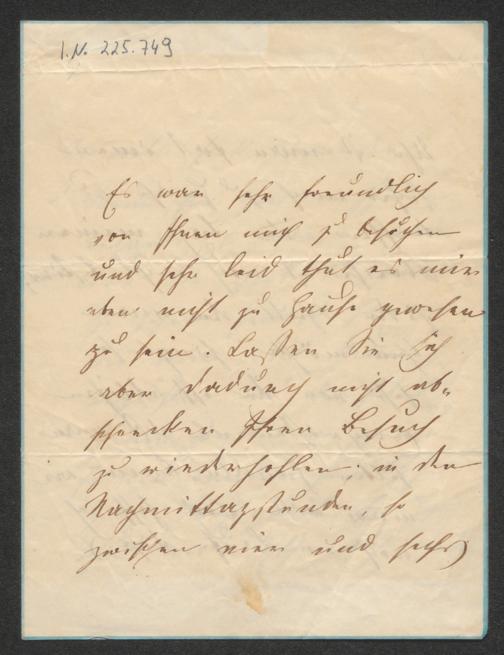 I. N. 225.749
Es war sehr freundlich
von Ihnen mich zu besuchen
und sehr leid thut es mir
eben nicht zu Hause gewesen
zu sein. Lassen Sie sich
aber dadurch nicht ab„
schrecken Ihren Besuch
zu wiederhohlen; in den
Nachmittagsstunden, so
zwischen vier und sechs